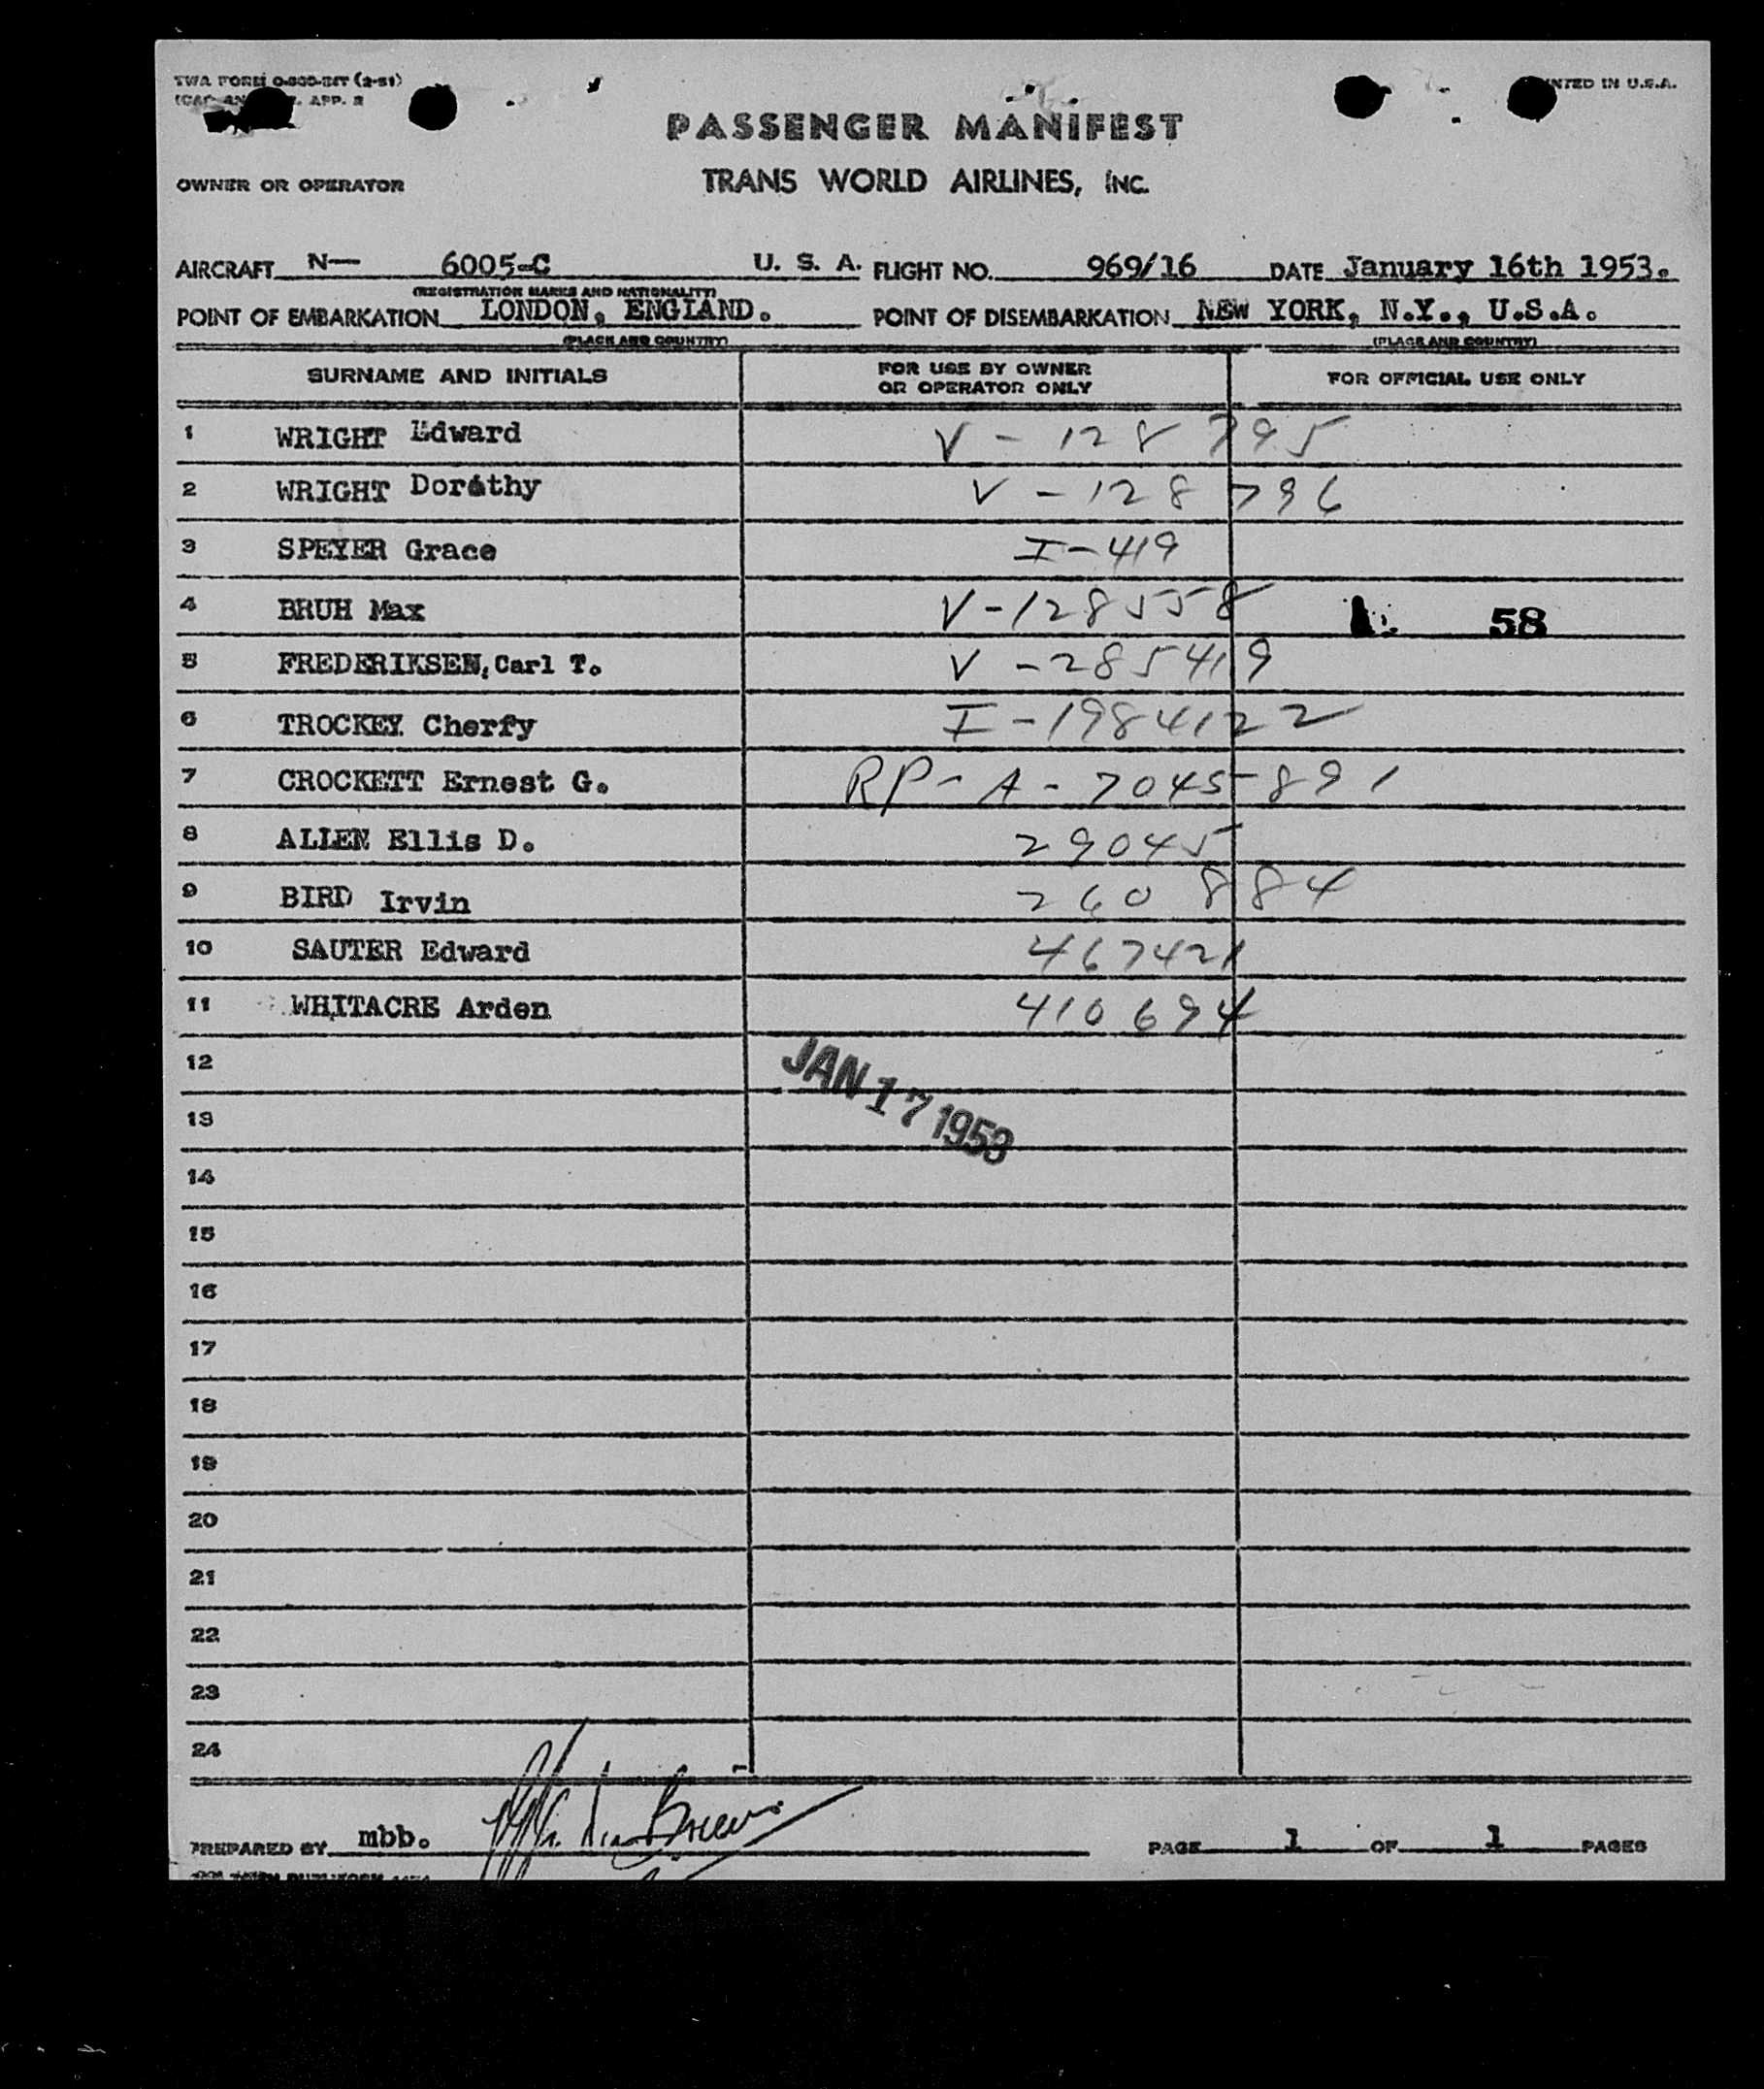 TWA FORM O-800-INT (2-51)
APP. 2
PRINTED IN U.S.A.
PASSENGER MANIFEST
OWNER OR OPERATOR TRANS WORLD AIRLINES, INC.
AIRCRAFT N— 6005-C U. S. A. FLIGHT NO. 969/16 DATE January 16th 1953.
(REGISTRATION MARKS AND NATIONALITY)
POINT OF EMBARKATION LONDON, ENGLAND. POINT OF DISEMBARKATION NEW YORK, N.Y., U.S.A.
(PLACE AND COUNTRY) (PLACE AND COUNTRY)
SURNAME AND INITIALS FOR USE BY OWNER OR OPERATOR ONLY FOR OFFICIAL USE ONLY
1 WRIGHT Edward V - 128795
2 WRIGHT Dorothy V - 128796
3 SPEYER Grace I - 419
4 BRUH Max V - 128558 58
5 FREDERIKSEN, Carl T. V - 285419
6 TROCKEY Cherfy I - 1984122
7 CROCKETT Ernest G. RP - A - 7045891
8 ALLEN Ellis D. 29045
9 BIRD Irvin 260884
10 SAUTER Edward 467421
11 WHITACRE Arden 410694
12
JAN 17 1953
13
14
15
16
17
18
19
20
21
22
23
24
PREPARED BY mbb. PAGE 1 OF 1 PAGES